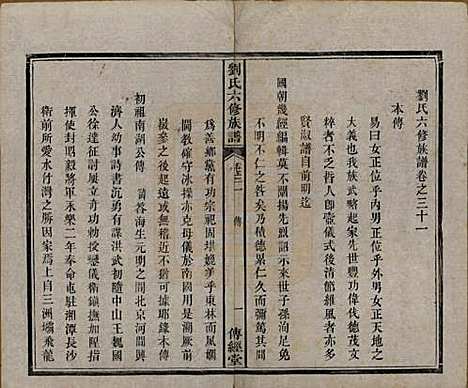 劉氏六修族譜卷之三十一
本傳
易曰女正位乎內男正位乎外男女正天地之
大義也我族武畧起家先世豐功偉德茂
淬不可殫述之哲人即壼儀式後清節維風者亦
賢淑譜自前明迄
國朝幾經編輯莫不闡揚先烈諮示來世子孫治足免
不明不仁之咎矣乃積德累仁久而
為善鄉黨有功宗祀固堪媲美乎東林而一
閫教確守冰操亦克母儀於南國用是湖厥前
嶽參之後起者寔不可縱耶緣本傳
初祖南湖公傳 諱容海生元明之間北京河間興
濟人幼事詩書沉勇有謀洪武初隨中山王魏國
公徐達征討屢立奇功勅授鑾儀衛鎮撫加一
揮使封毅將軍永樂二年奉命屯駐湘潭長沙
衛前所愛水竹灣之勝因家焉上自三洲壩飛龍
劉氏六修族譜
卷三十一
傳
一
傳經堂